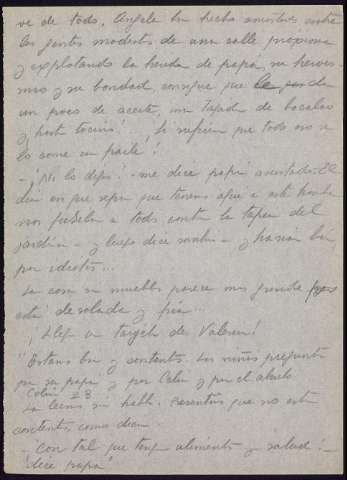 ve de todo. Angela ha hecho amistades entre
las gentes modestas de una calle próxima
y explotando la herida de papá, su herois-
mo y su bondad, consigue que le
un poco de aceite, un tajada de bacalao
y hasta tocino! Si supieran que todo no se
lo come un facha!
- ¡Ni lo digas! - me dice papá asustado. El
día en que sepan que tenemos aquí a este hombre
nos fusilan a todos contra la tapia del
jardín - y luego dice - y harían bien,
por idiotas...
La casa sin muebles parece más grande pero
está desolada y fría...
¡Llega una tarjeta de Valencia!
"Estamos bien y contentos. Los niños preguntan
por su papá y por Celia y por el abuelo
Calle 28
La leona sin hablar. que no está
contenta, como dicen
¡con tal que tengan alimentos y salud! -
dice papá